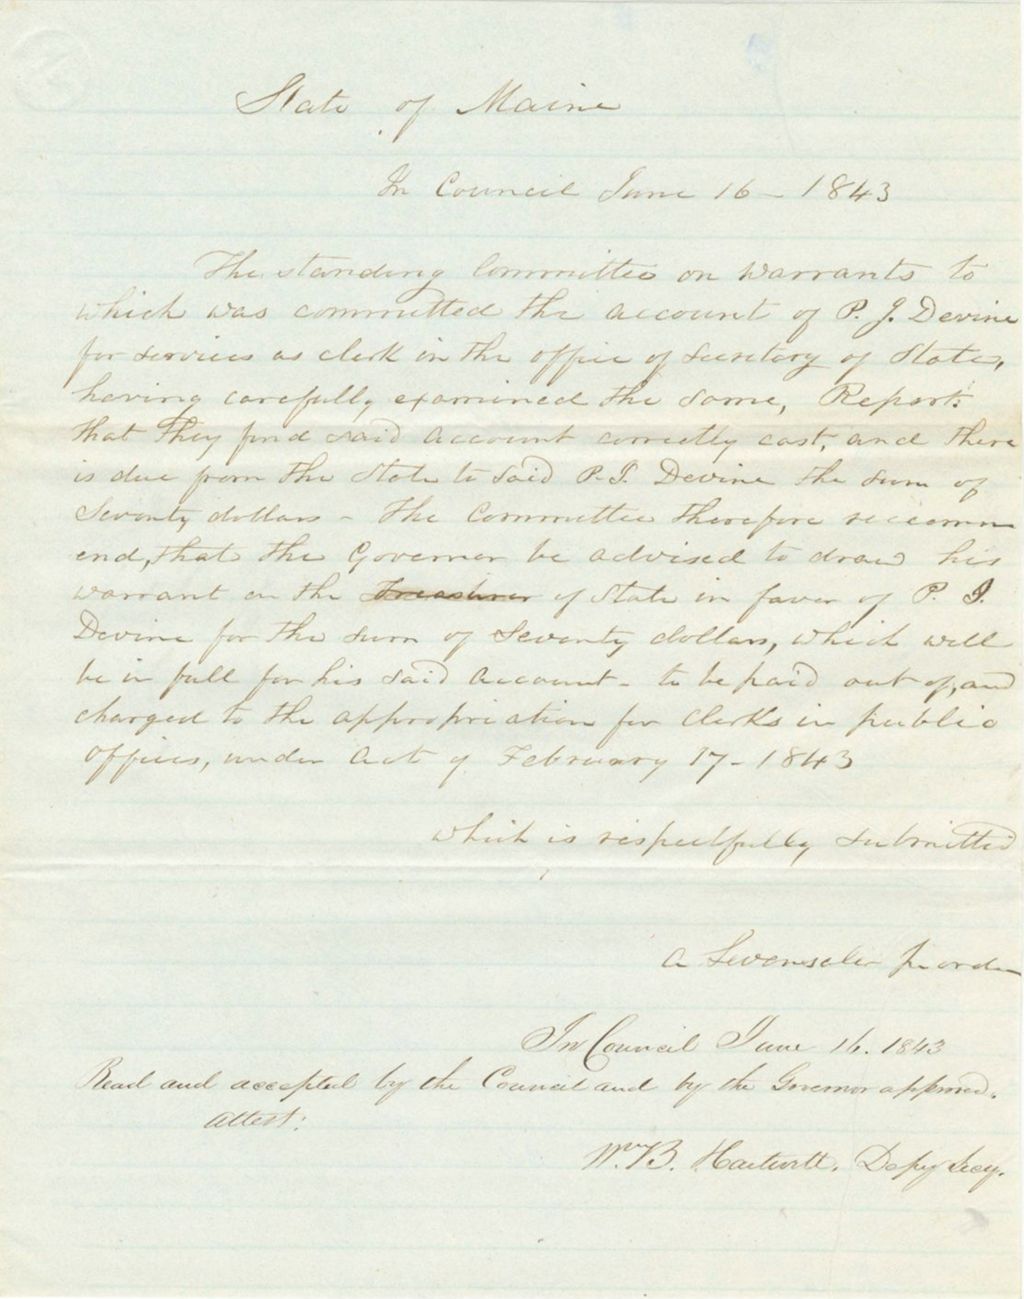 State of Maine
In Council June 16 - 1843
The standing Committee on Warrants to
which was committed the account of P. J. Devine
for services as clerk in the office of Secretary of State,
having carefully examined the same, Report:
that they find said account correctly cast, and there
is due from the State to said P. J. Devine the sum of
Seventy dollars - The Committee therefore recomm
end, that the Governor be advised to draw his
warrant on the Treasurer of State in favor of P. J.
Devine for the sum of Seventy dollars, which will
be in full for his said account - to be paid out of, and
charged to the appropriation for Clerks in public
offices, under act of February 17 - 1843
which is respectfully submitted
A Levensaler pr order
In Council June 16. 1843
Read and accepted by the Council and by the Governor approved.
Attest:
Wm B. Hartwell. Depy Secy.